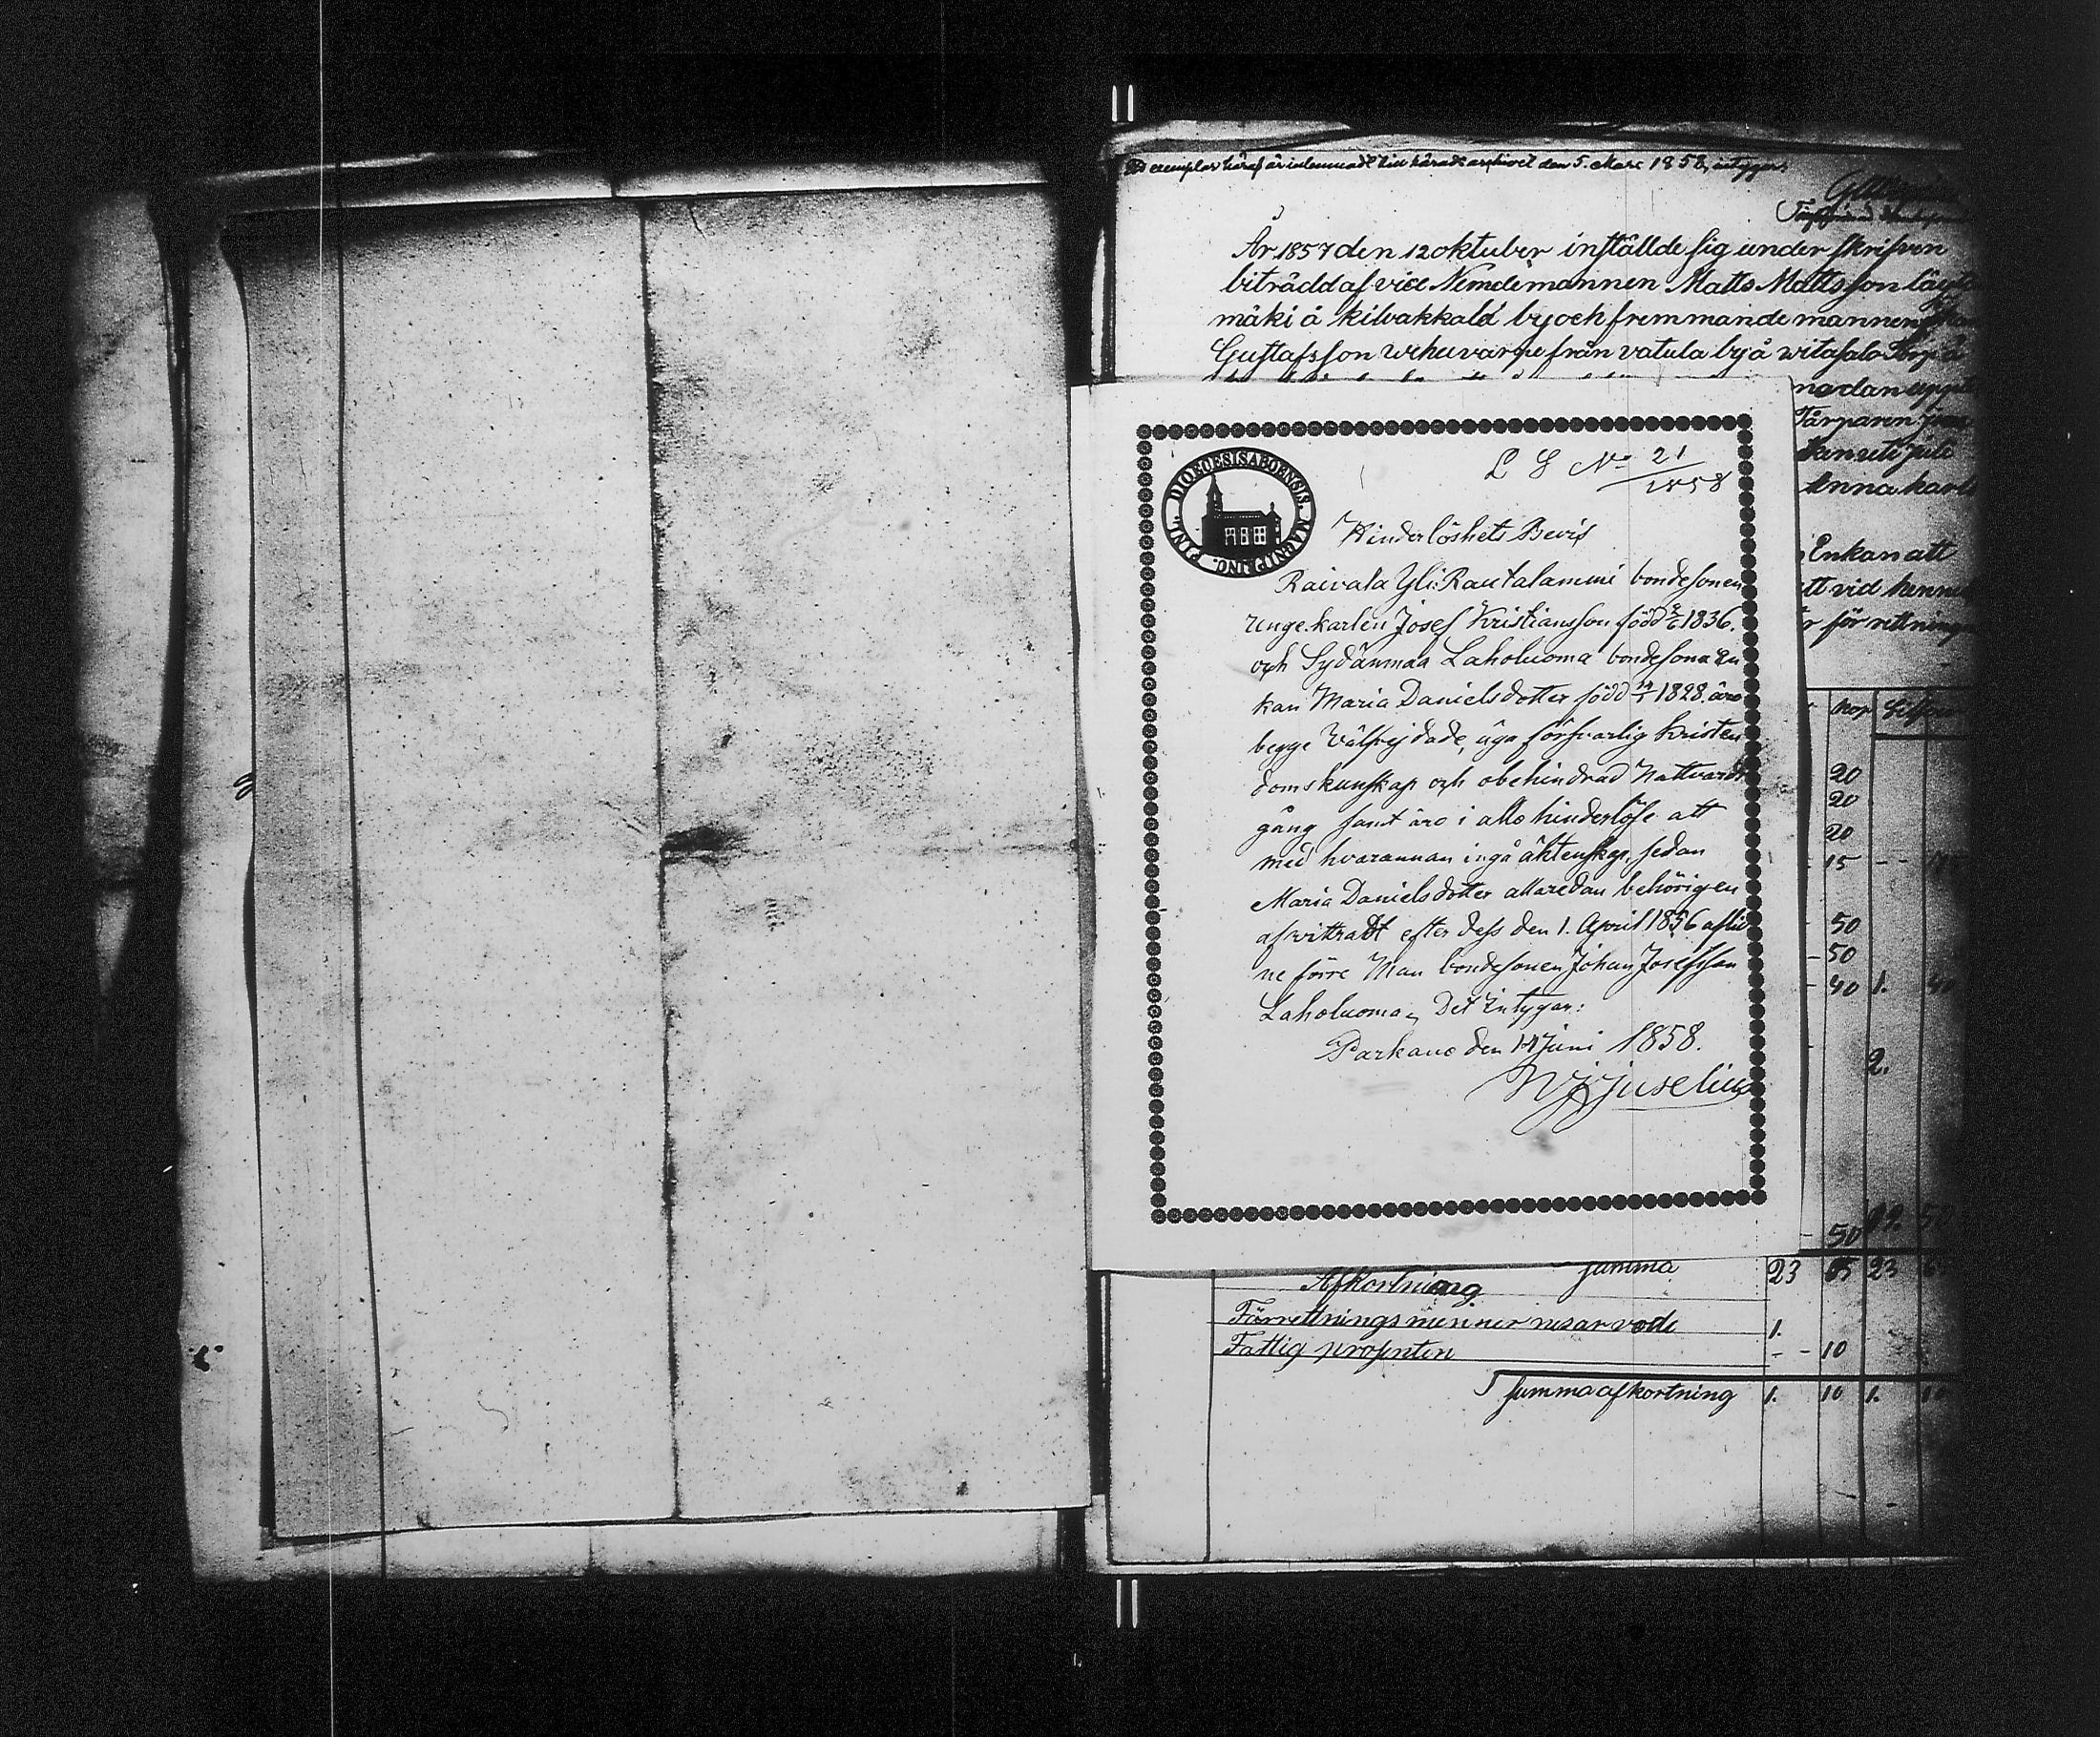 exemplar häraf är inlemnadt till härads archivet den 5. Mars 1858, intygar:
År 1857 den 12 oktuber instälde sig under skrifven
biträdd af vice Nemdemannen Matts Mattsson
mäki å kilvakkala by och fremmande mannen
Gustafsson wehuvarpe från vatula by å witasalo
nedan
Tårparen
Anna
Enkan att
tt vid
r för rettning
DIOECESIS ABOENSIS MAGNI PRINC. FINL.
L S No 21/1858
Hinderlöshets Bevis
Raivala Yli-Rautalammi bondesonen
unge karlen Josef Kristiansson född 2/6 1836.
och Sydänmaa Laholuoma bondesona En
kan Maria Danielsdotter född 1828. äro
begge Välfrejdade, äga försvarlig Kristen
domskunskap och obehindrad Nattvards
gång samt äro i allo hinderlöse att
med hvarannan ingå äktenskap, sedan
Maria Danielsdotter allaredan behörigen
afvittradt efter dess den 1. April 1856 aflid
ne förre Man bondesonen Johan Josefsson
Laholuoma, Det intygar:
Parkano den 14 Juni 1858.
Juselius
kop
20
20
20
15
50
50
40 1.
2.
50
summa 23 65 23
Afkortning
Förrettnings menner nes arvode 1.
Fattig prosenten - - 10
Summa afkortning 1. 10 1. 10